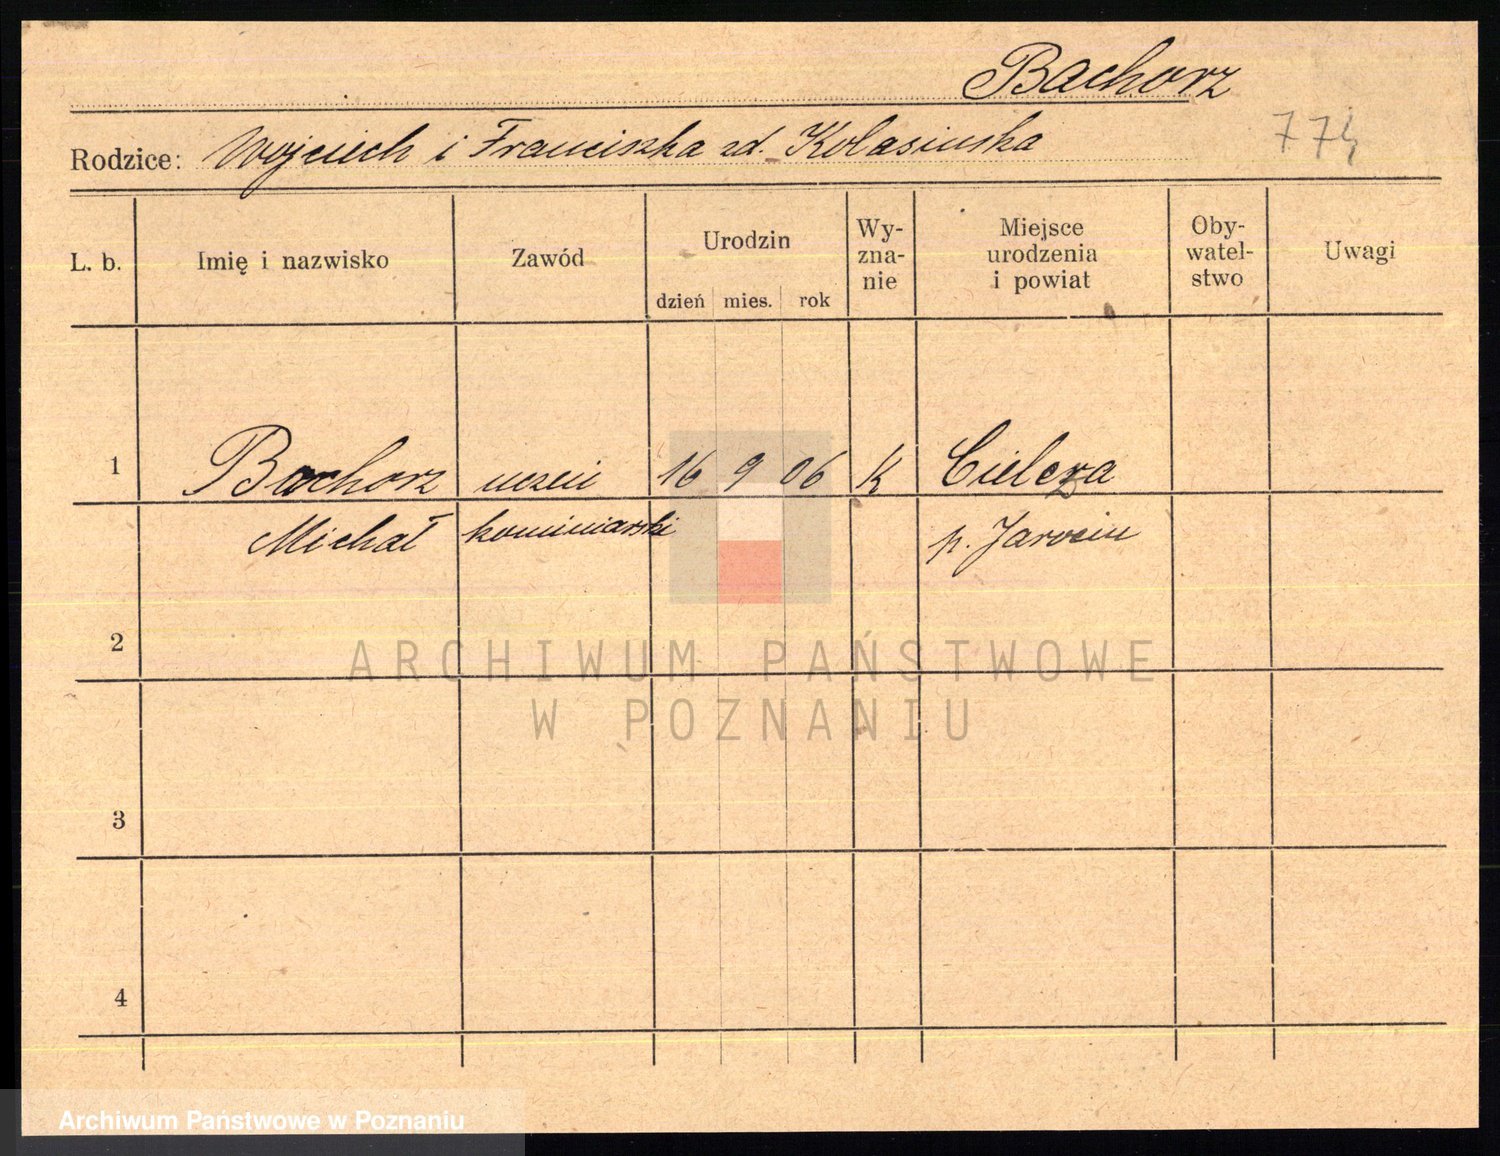 Bachorz
Rodzice: Wojciech i Franciszka zd. Kolasinska
774
L. b.
Imię i nazwisko
Zawód
Urodzin
dzień mies. rok
Wy-
zna-
nie
Miejsce
urodzenia
i powiat
Oby-
watel-
stwo
Uwagi
1 Bachorz uczeń 16 9 06 K Cielcza
Michał kominiarski p. Jarocin
2
3
4
ARCHIWUM PAŃSTWOWE
W POZNANIU
Archiwum Państwowe w Poznaniu